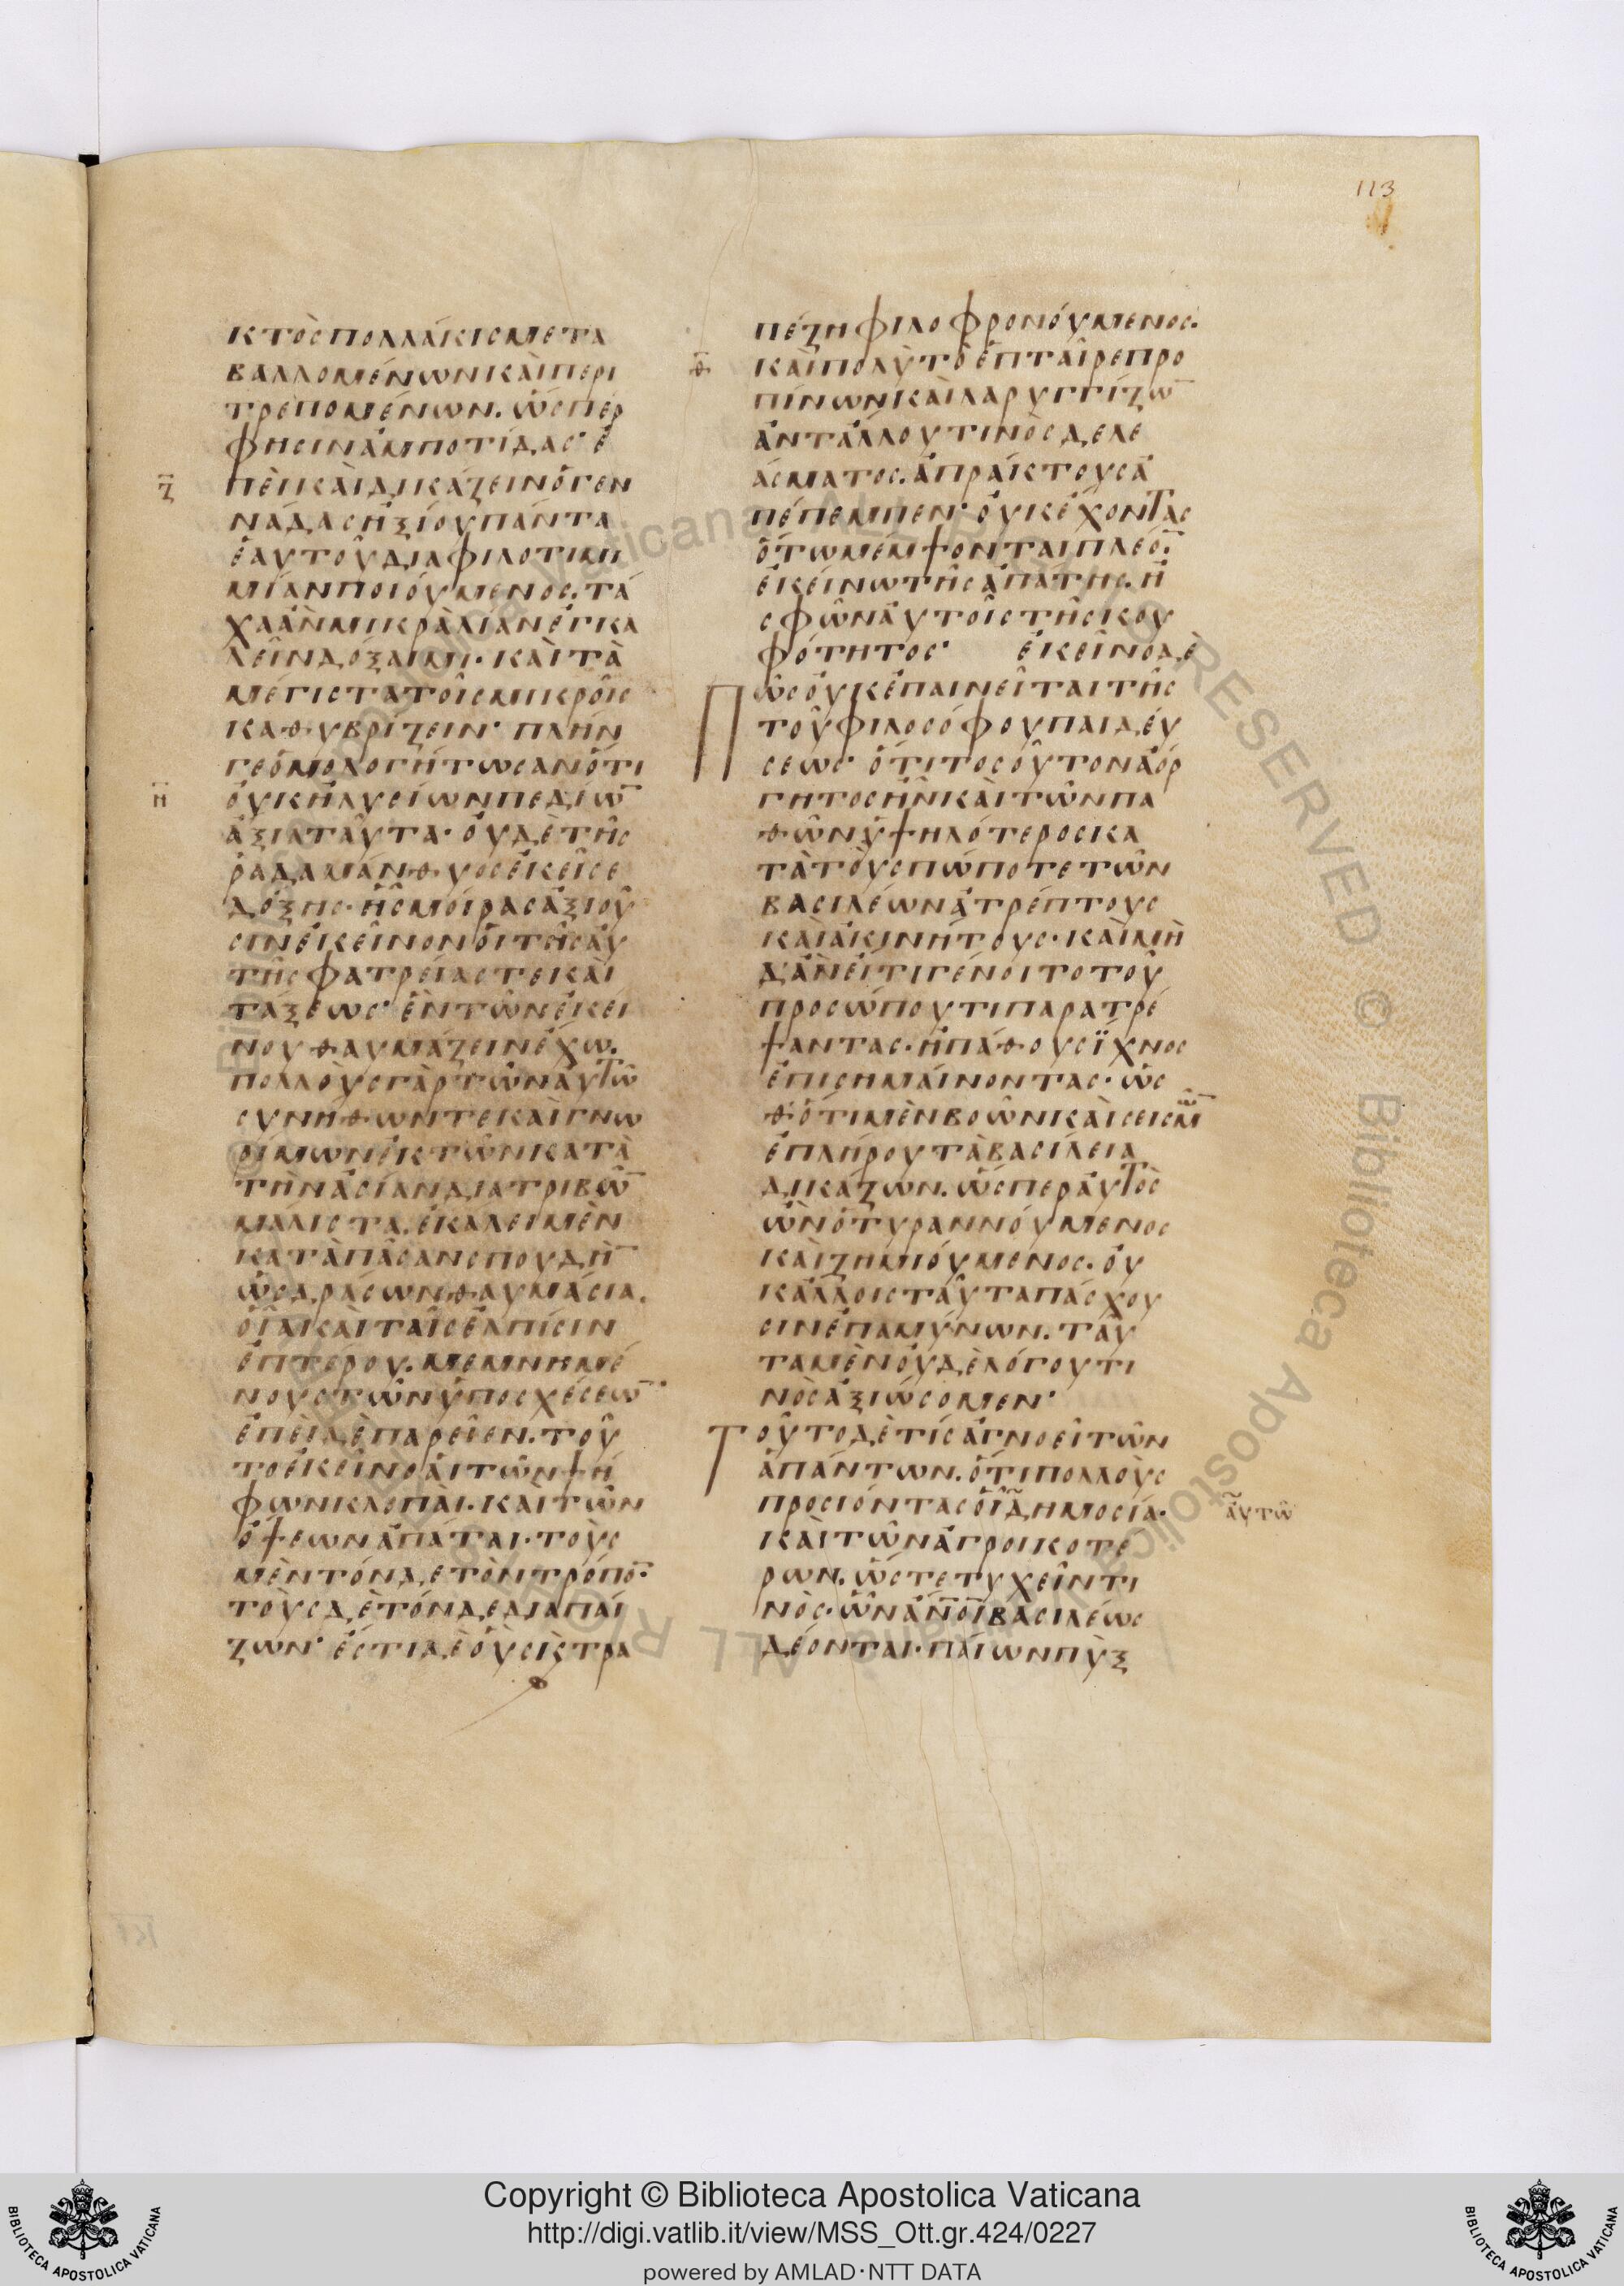 113
κτὸσπολλάκισμετα
βαλλομένωνκαὶπερι
τρεπομένων. ὥσπερ
φησὶνἀμπωτίδασ· ἐ
Ζ
πεὶκαὶδικάζεινὁγεν
νάδασἠξίουπάντα
ἑαυτοῦδιαφιλοτιμη
μίανποιούμενοσ. τά
χαἂνμικρὰλίανἐγκα
λεῖνδόξαιμι· καὶτὰ
μέγιστατοῖσμικροῖσ
καθυβρίζειν· πλήν
γεὁμολογήτωσανὅτι
Η
οὐκἠλυσίωνπεδίω̅
ἄξιαταῦτα· οὐδὲτῆσ
ῥαδαμάνθυοσἐκεῖσε
δόξησ· ἧσμοίρασἀξιοῦ
σινἐκεῖνονὁιτῆσαὐ
τῆσφατρείαστεκαὶ
τάξεωσ· ἓντῶνἐκεί
νουθαυμάζεινἔχω.
πολλοὺσγὰρτῶναὐτῶ̅
συνήθωντεκαὶγνω
ρίμωνἐκτῶνκατὰ
τὴνἀσίανδιατριβῶ̅
μάλιστα, ἐκάλειμὲν
κατὰπᾶσανσπουδὴ̅
ὡσδράσωνθαυμάσια.
οἷαικαὶταῖσἐλπίσιν
ἐπτέρου. μεμνημέ
νουστῶνὑποσχέσεω̅
ἐπεὶδὲπαρεῖεν. τοῦ
τοἐκεῖνοαἱτῶνψή
φωνκλοπαὶ. καὶτῶν
ὄψεωνἀπάται· τοὺσ
μὲντόνδετὸντρόπο̅·
τοὺσδὲτόνδεδιαπαί
ζων· ἔστιδ᾽ἑοὺσκτρα
πέζηφιλοφρονούμενοσ.
Θ
καὶπολὺτὸἐπταῖρεπρο
πίνωνκαὶλαρυγγίζω̅
ἀντάλλουτινὸσδελε
άσματοσ. ἀπράκτουσἀ
πέπεμπεν· οὐκἔχοντασ
ὅτωμέμψονταιπλέο̅·
ἐκείνωτῆσἀπάτησ. ἢ
σφῶναὐτοῖστῆσκου
φότητοσ· ἐκεῖνοδὲ
Πῶσοὐκἐπαινεῖταιτῆσ
τοῦφιλοσόφουπαιδεύ
σεωσ· ὅτιτοσοῦτονἀόρ
γητοσἦνκαὶτῶνπα
θῶνὑψηλότεροσκα
τὰτοὺσπώποτετῶν
βασιλέωνἀτρέπτουσ
καὶἀκινήτουσ· καὶμὴ
δ᾽ἂνεἴτιγένοιτοτοῦ
προσώπουτιπαρατρέ
ψαντασ· ἢπάθουσϊχνοσ
ἐπισημαίνοντασ· ὥσ
θ᾽ὅτιμὲνβοῶνκαὶσεισμ̅
ἐπλήρουτὰβασίλεια
δικάζων. ὥσπεραὐτὸσ
ὢνὁτυραννούμενοσ
καὶζημιούμενοσ. οὐ
κἄλλοισταῦταπάσχου
σινἐπαμύνων. ταῦ
ταμὲνοὐδὲλόγουτι
νὸσἀξιώσομεν·
Τοῦτοδὲτίσἀγνοεῖτῶν
ἁπάντων. ὅτιπολλοὺσ
προσιόντασοἷδημοσία·
αὐτῶ̅
καὶτῶνἀγροικοτέ
ρων. ὥστετυχεῖντι
νὸσ· ὧνἂν̅οἱβασιλέωσ
δέονται· παίωνπὺξ
Copyright © Biblioteca Apostolica Vaticana
http://digi.vatlib.it/view/MSS_Ott.gr.424/0227
powered by AMLAD·NTT DATA
BIBLIOTECA APOSTOLICA VATICANA
BIBLIOTECA APOSTOLICA VATICANA